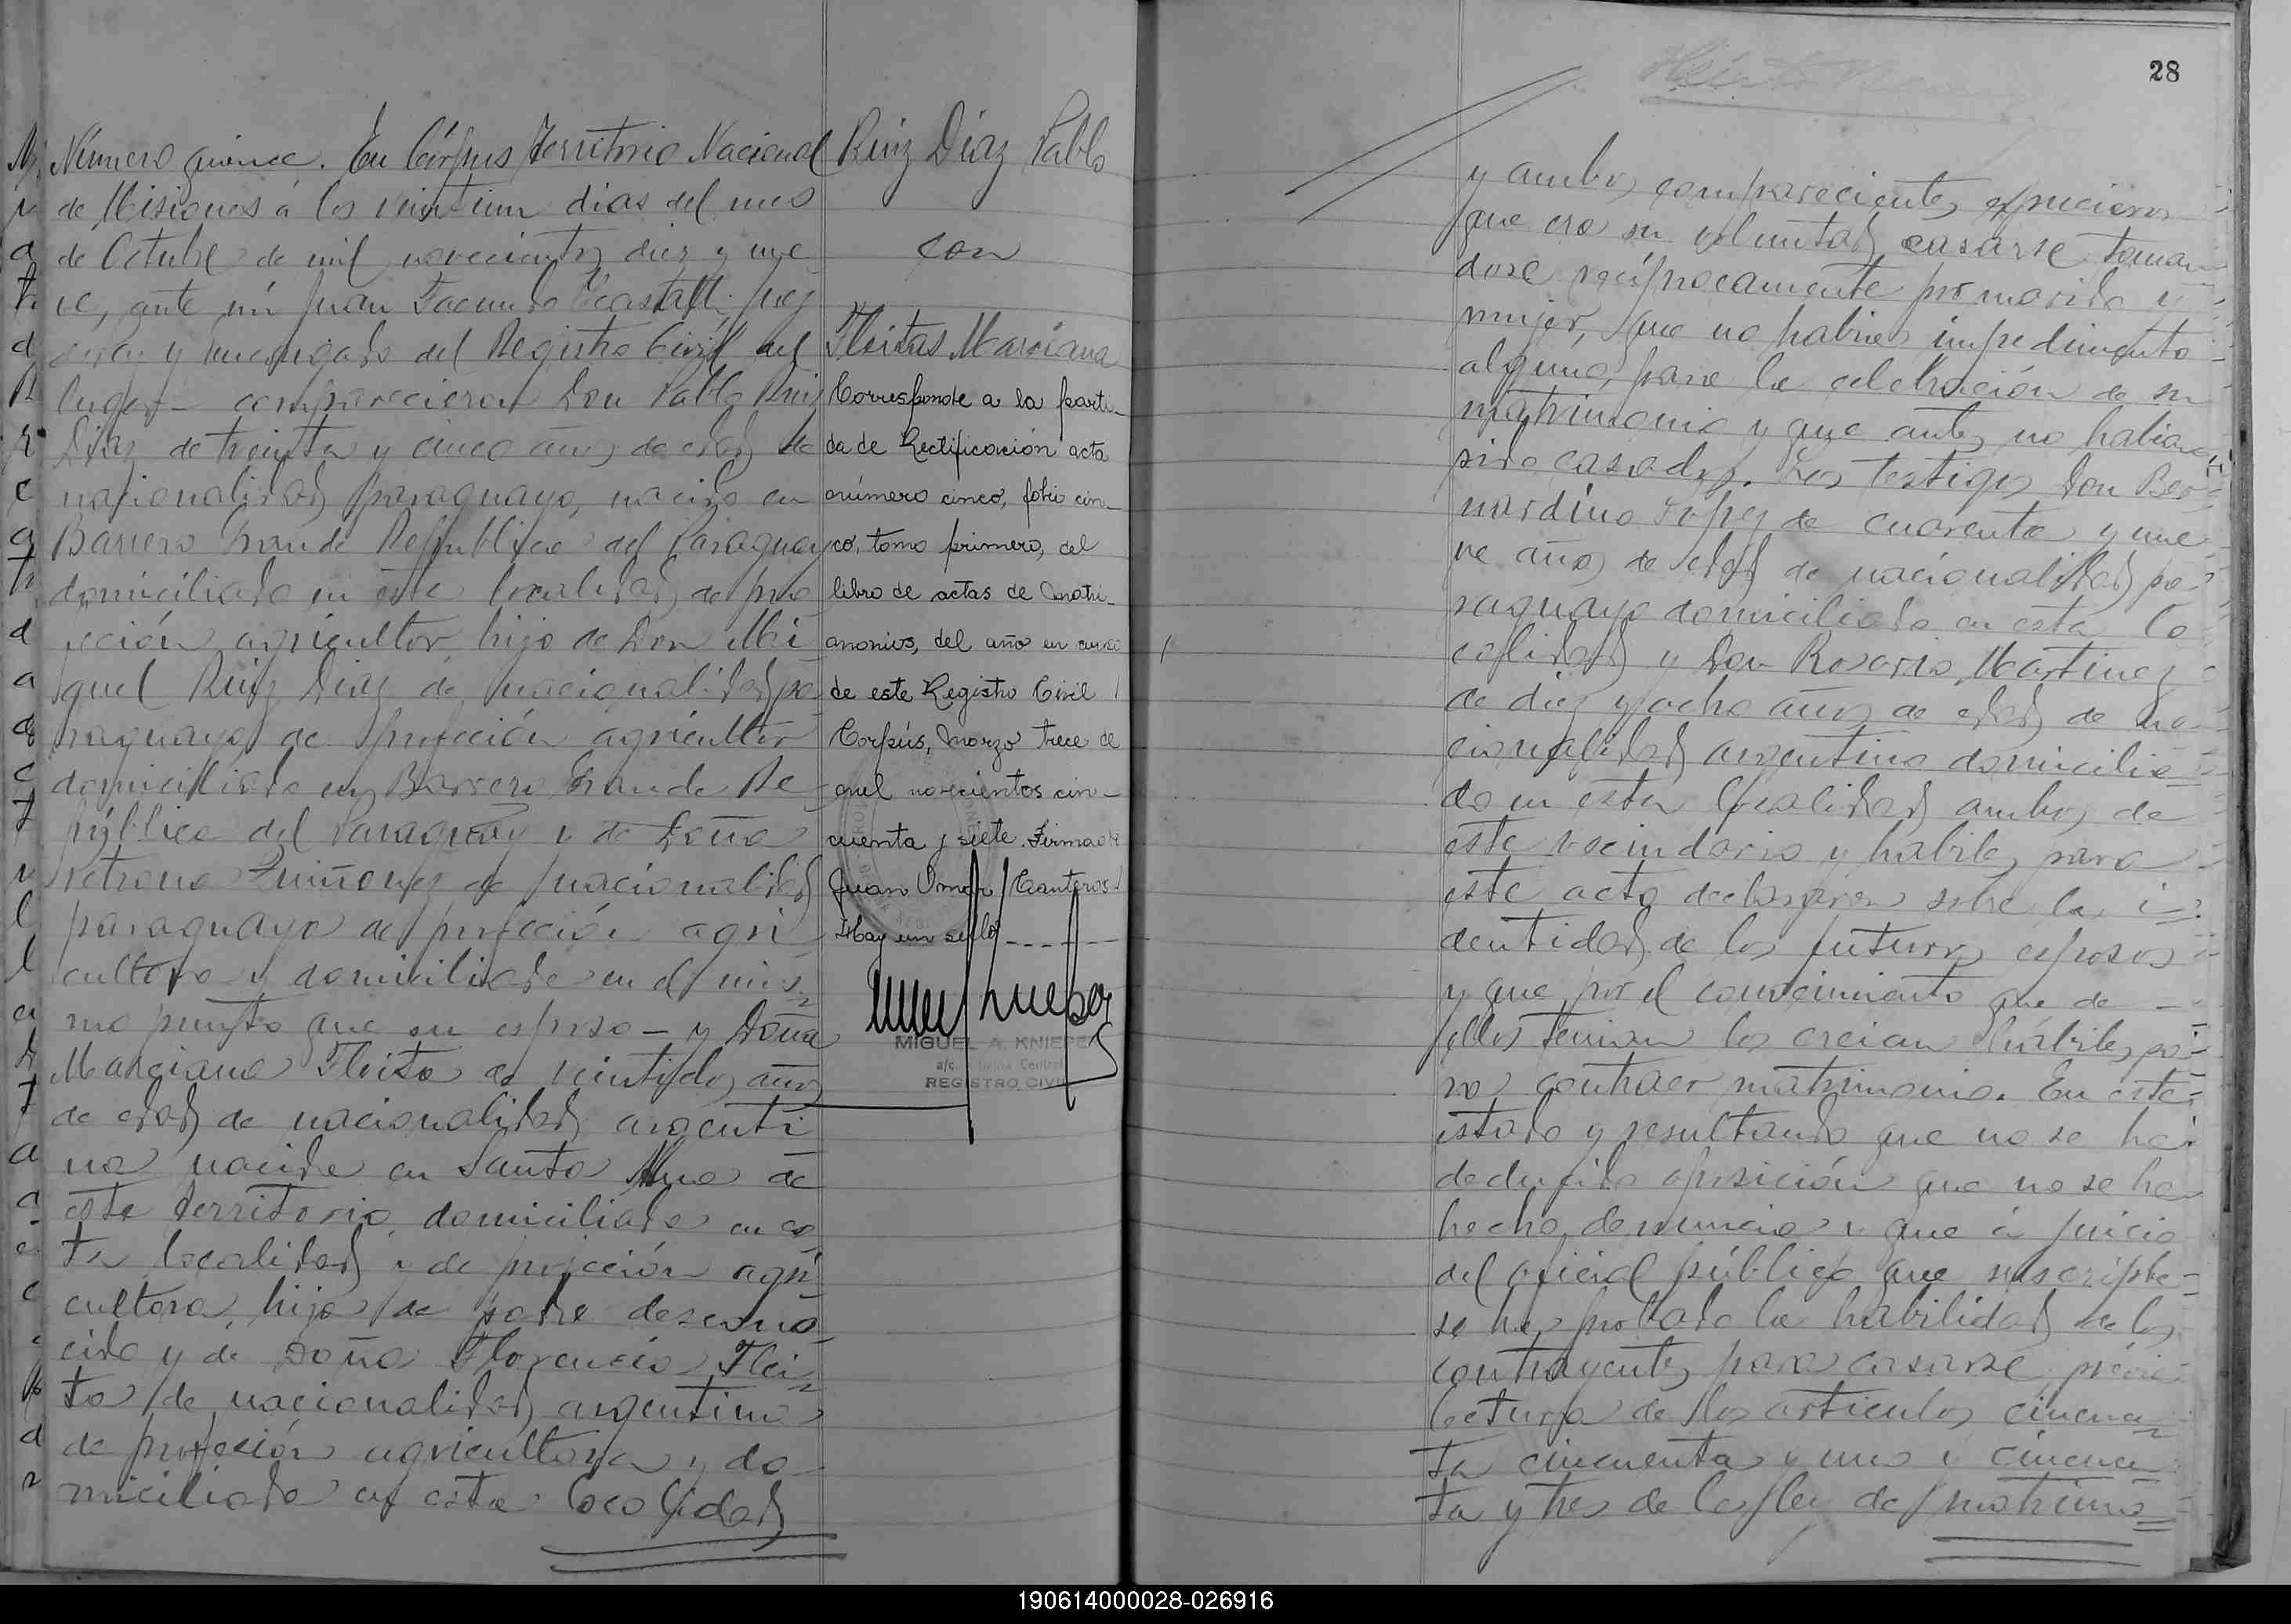 Número quince. En Córpus Territorio Nacional
de Misiones á los veintiun dias del mes
de Octubre de mil novecientos diez y nue
ve, ante mí Juan Facundo juez
y encargado del Registro Civil del
lugar comparecieron Don Pablo Ruiz
Diaz de treinta y cinco años de edad de
nacionalidad paraguaya, nacido en
Barrero Grande República del Paraguay
domiciliado en esta localidad de pro
feción agricultor hijo de Don Mi
guel Ruiz Diaz de nacionalidad pa
raguaya de profección agricultor
domiciliado en Barrero Grande Re
pública del Paraguay y de Doña
Petrona Quiñonez de nacionalidad
paraguaya de profección agri
cultora y domiciliada en el mis
mo punto que su esposo – y Doña
Marciana Fleita de veintidos años
de edad de nacionalidad argenti
na nacida en Santa Ana de
este territorio domiciliada en es
ta localidad y de profección agri
cultora, hija de padre descono
cido y de Doña Florencia Flei
ta de nacionalidad argentina
de profesión agricultora y do
miciliada en esta localidad
Ruiz Diaz Pablo
con
Fleitas Marciana
Corresponde a la parti_
da de Rectificación acta
número cinco, folio cin_
co, tomo primero, del
libro de actas de Matri_
monios, del año en curso
de este Registro Civil
Corpús, Marzo trece de
mil novecientos cin_
cuenta y siete. Firmado
Juan Omar Canteros
Hay un sello
MIGUEL A. KNIEPER
a/c. Oficina Central
REGISTRO CIVIL
28
y ambos comparecientes espusieron
que era su voluntad casarse toman
dose recíprocamente por marido y
mujer, que no habia impedimento
alguno para la celebración de su
matrimonio y que antes no habian
sido casados. Los testigos Don Ber
nardino Lopez de cuarenta y nue
ve años de edad de nacionalidad pa
raguaya domiciliado en esta lo
calidad y Don Rosario Martinez
de diez y ocho años de edad de na
cionalidad argentina domicilia
do en esta localidad ambos de
este vecindario y habiles para
este acto declararon sobre la i
dentidad de los futuros esposos
y que por el conocimiento que de
ellos tenian los creian hábiles pa
ra contraer matrimonio. En este
estado y resultando que no se ha
deducido oposición que no se ha
hecho denuncia y que á juicio
del oficial público que suscripbe
se ha probado la habilidad de los
contrayentes para casarse previa
lectura de los articulos cincuen
ta cincuenta y uno y cincuen
ta y tres de la ley de matrimo
190614000028-026916